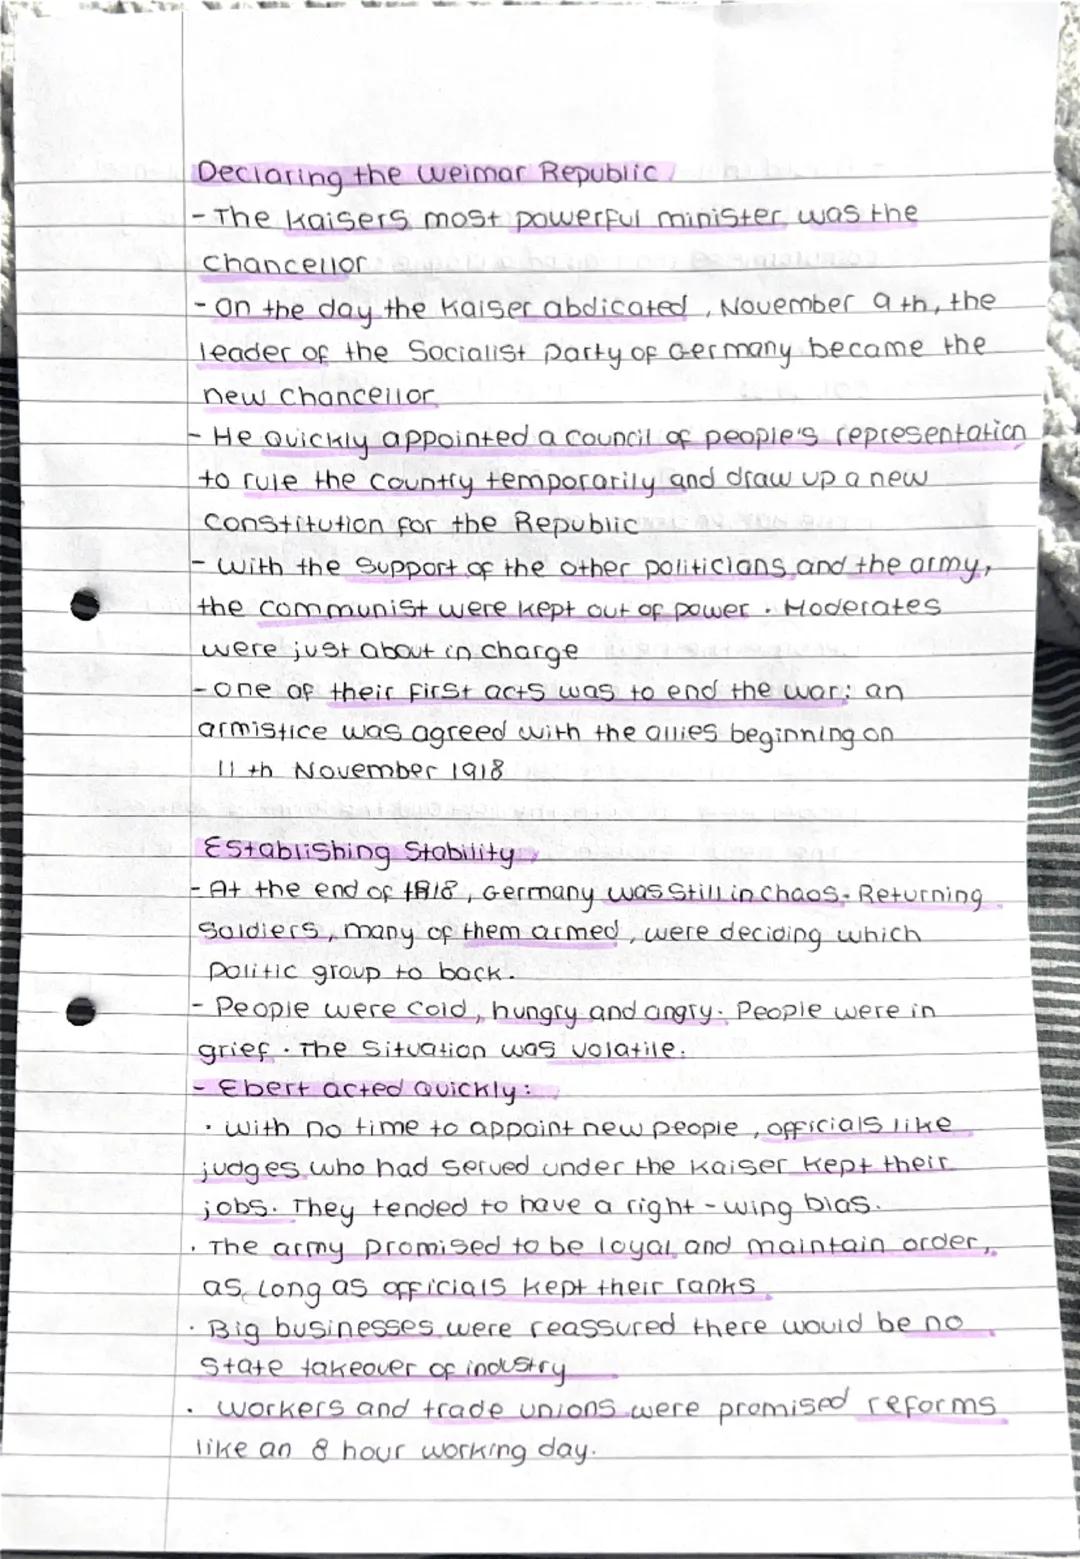 Declaring the Weimar Republic
- The Kaisers most powerful minister was the
chancellor
- On the day the Kaiser abdicated, November 9th, the
leader of the Socialist party of Germany became the
new chancellor
- He quickly appointed a council of people's representation
to rule the country temporarily and draw up a new
constitution for the Republic
- With the support of the other politicians and the army,
the communist were kept out of power. Moderates
were just about in charge
- one of their first acts was to end the war: an
armistice was agreed with the allies beginning on
11th November 1918

Establishing Stability
- At the end of 1918, Germany was still in chaos. Returning
soldiers, many of them armed, were deciding which
politic group to back.
- People were cold, hungry and angry. People were in
grief. The situation was volatile.
- Ebert acted quickly:
· with no time to appoint new people, officials like
judges who had served under the Kaiser kept their
jobs. They tended to have a right-wing bias.
· The army promised to be loyal and maintain order,
as long as officials kept their ranks
· Big businesses were reassured there would be no
state takeover of industry
· workers and trade unions were promised reforms
like an 8 hour working day.